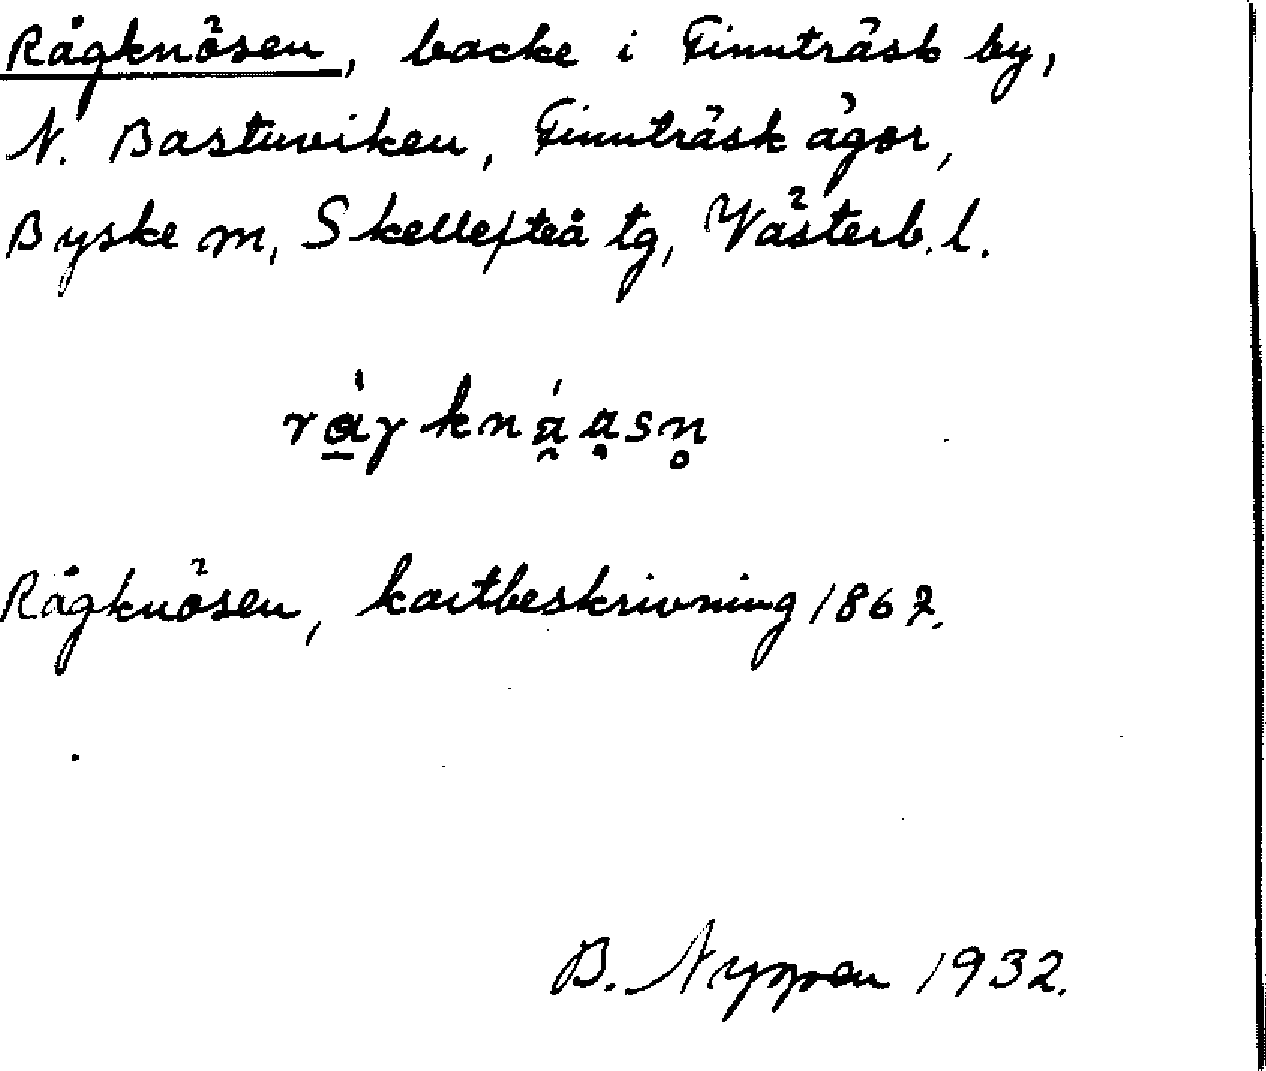 Rågknösen, backe i Finnträsk by,
N. Bastuviken, Finnträsk ägor,
Byske sn, Skellefteå tg, Västerb. l.
Rågknösen, kartbeskrivning 1862.
B. Nygren 1932.